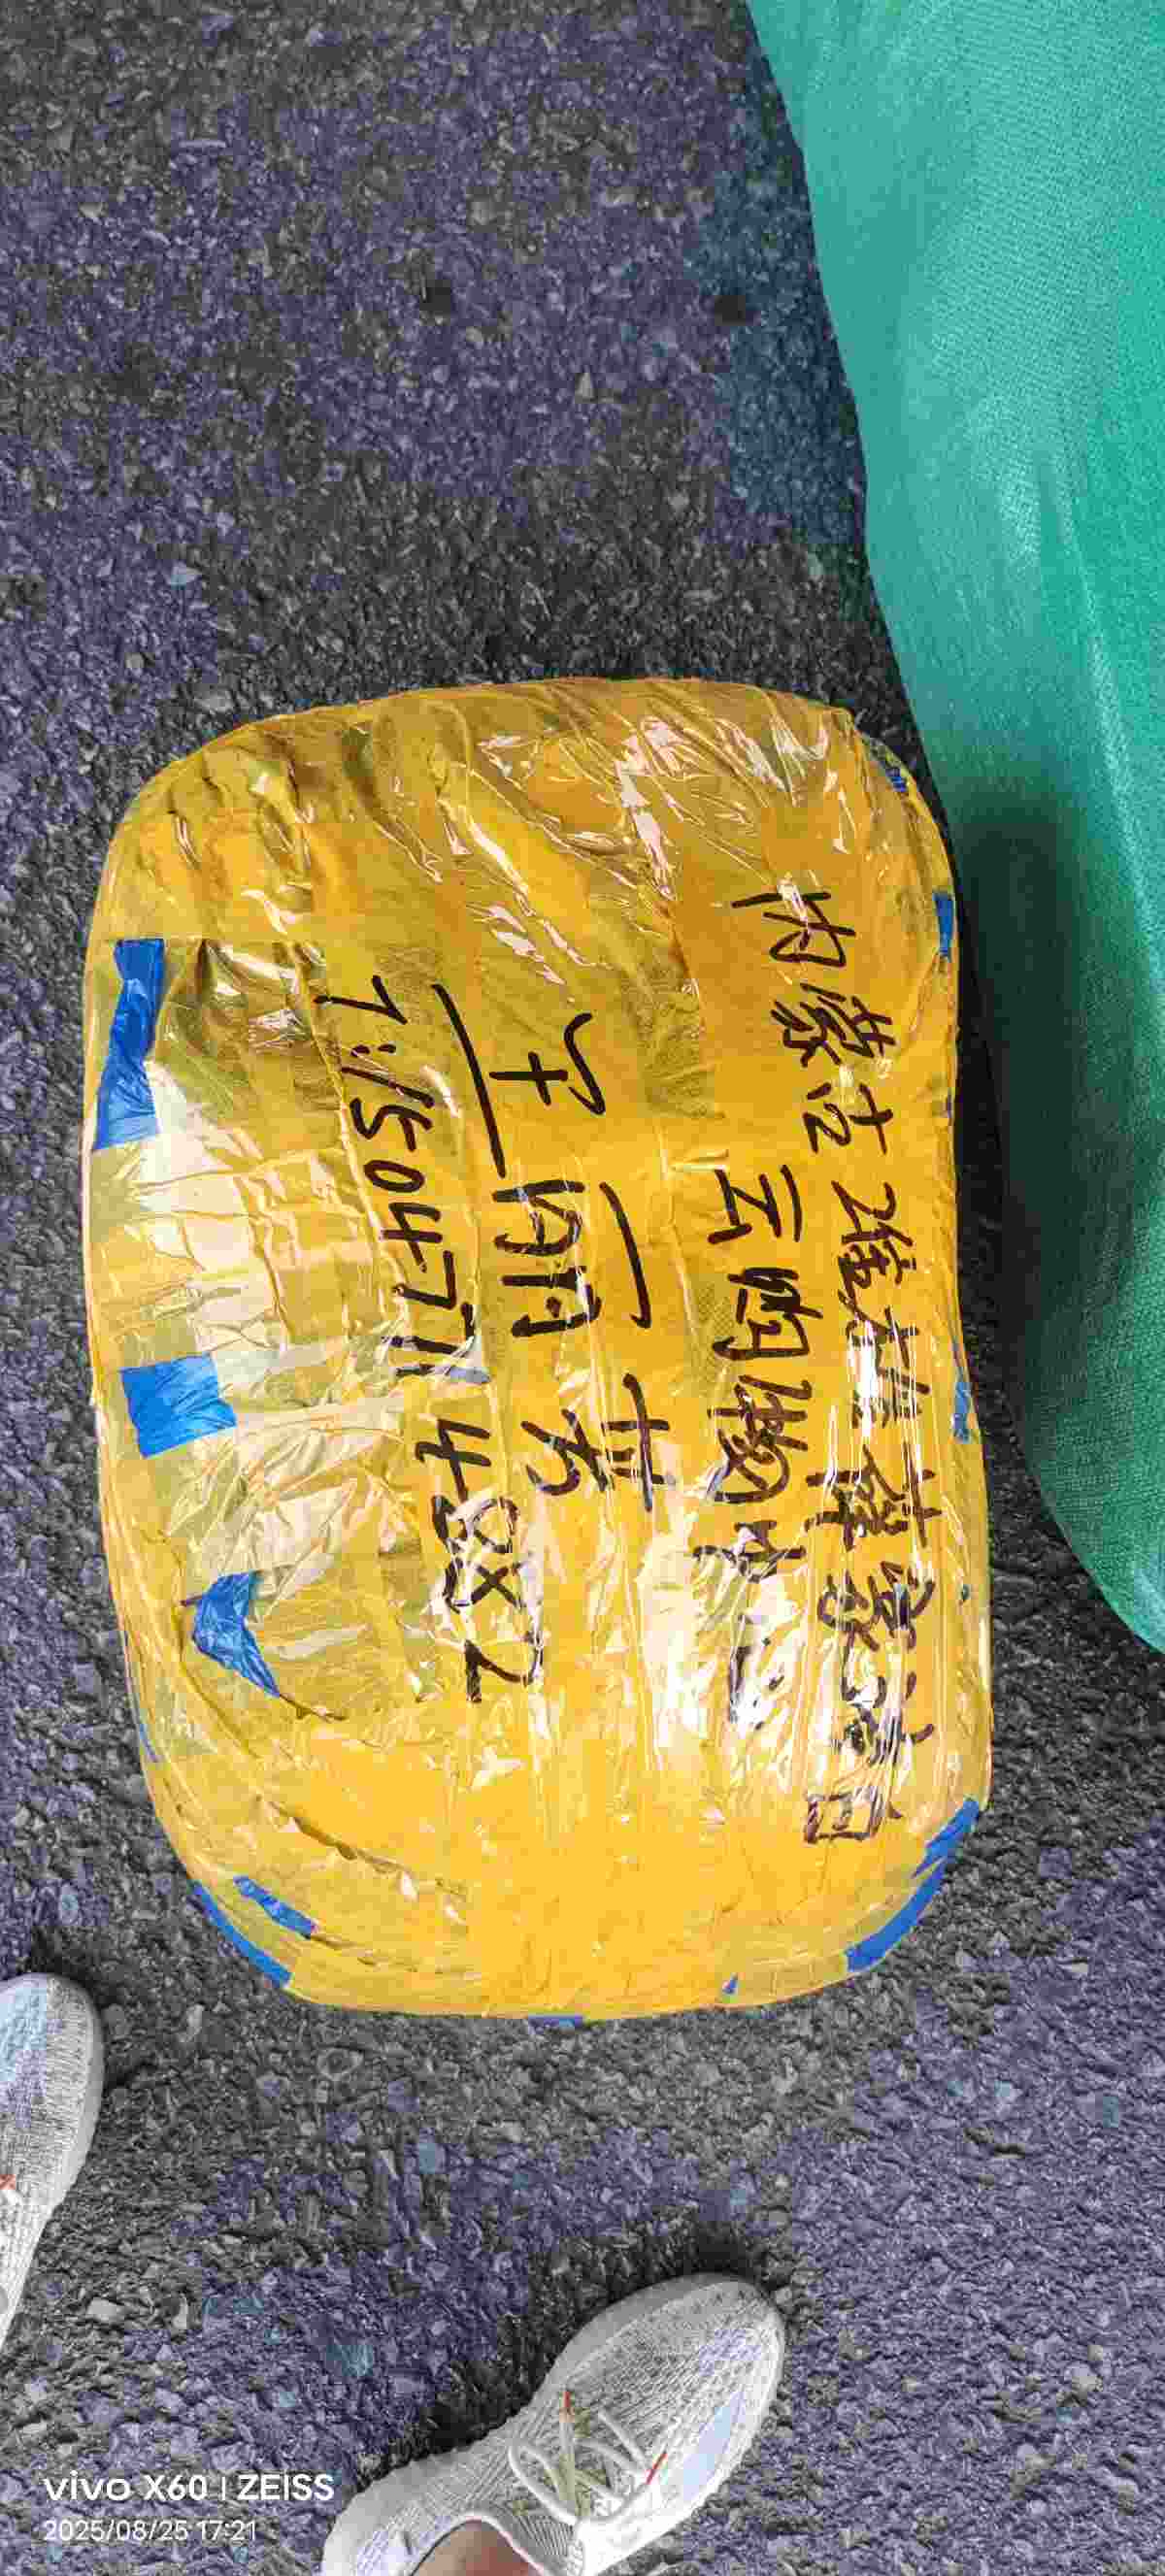 内蒙古准旗薛家湾
云购微
丽芳
T:15047714882
vivo X60 | ZEISS
2025/08/25 17:21